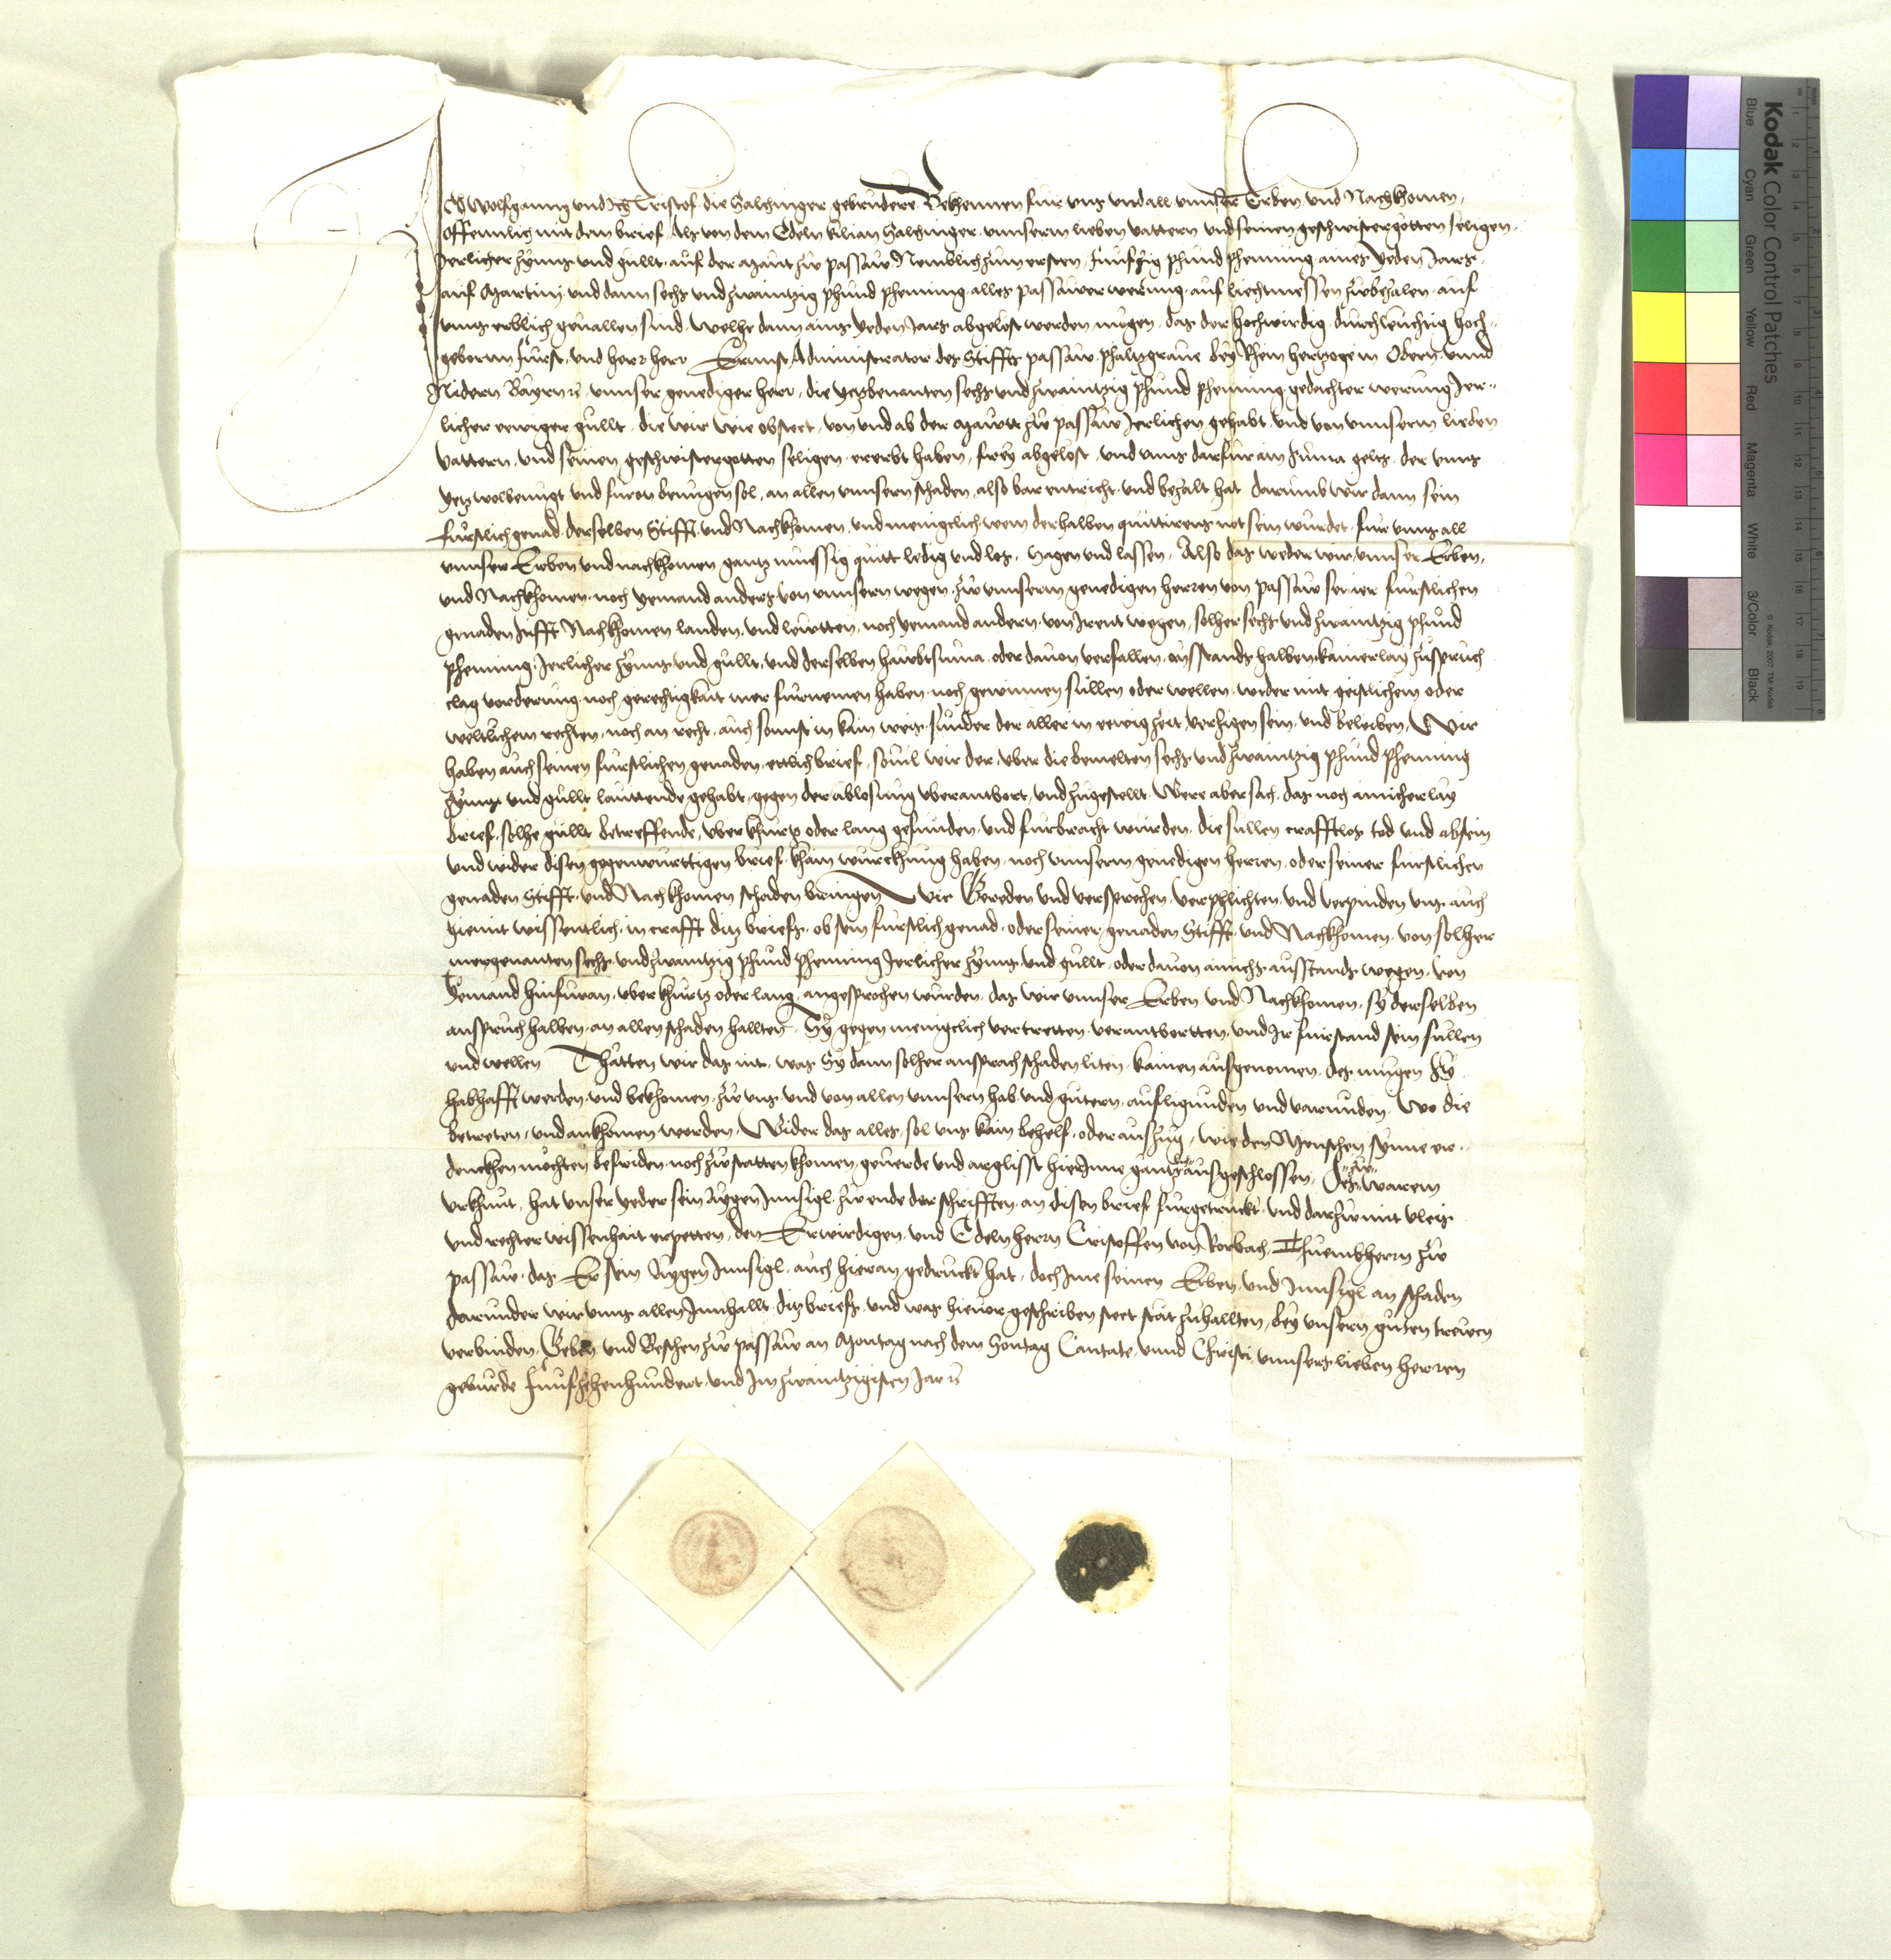 Ich Wolfganng vnd Ich Cristof die Salchinger gebrudere Bekhennen fur vns vnd all vnnser Erben vnd Nachkhomen,
offennlich mit dem brief, Als von dem Edeln Kilian Salchinger vnnserm lieben vattern vnd seinen geschwistergotten seligen
Jerlicher zynns vnd gullt auf der Maut zw passaw Nemblich zum ersten funfzig phund phening aines yeden Jars,
auf Martinj vnd dann sechs vnd zwaintzig phund phening alles passawer werung auf liechtmessen zwbezalen auf
vnns erblich geuallen sind, welhe dann ains yeden Jars abgelost werden mugen, das der hochwirdig durchleuchtig hoch-
geborrnn furst, vnd herr herr Ernnst Administrator des Stiffts passaw phaltzgraue bey Rhein hertzog in Obern vnnd
Nidern Bayrn etc vnnser genediger herr, die yetzbenanten sechs vnd zwaintzig phund phenning gedachter werung Jer-
licher eewiger gullt, die wir wie obsteet, von vnd ab der Mawtt zw passaw Jerlichen gehabt vnd von vnnserm lieben
vattern, vnd seinen geschwistergotten seligen ererbt haben, frey abgelost, vnd vnns darfur ain suma gelts, der vnns
yetz wolbenugt vnd furon benugen sol, an allen vnnsern schaden also bar entricht vnd bezalt hat darumb wir dann sein
furstlich genad, derselben Stifft vnd Nachkhomen, vnd menigclich wem derhalben quittirens not sein wurdet, fur vnns all
vnnser Erben vnd nachkhomen gantz muessig quitt ledig vnd los, Sagen vnd lassen, Also das weder wir, vnnser Erben,
vnd Nachkhomen, noch yemand anders von vnnsern wegen, zw vnnserm genedigen herren von passaw seiner furstlichen
genaden Stifft Nachkhomen landen, vnd leutten, noch yemand andern von Irent wegen, solher sechs vnd zwaintzig phund
phening Jerlicher zynns vnd gullt, vnd derselben haubtsuma, oder dauon verfallen, ausstands halben kainerlay zuspruch
clag vorderung noch gerechtigkait mer furnemen haben noch gewinnen sullen oder wellen, weder mit geistlichem oder
weltlichem rechten, noch an recht, auch sonnst in kain weis, sunder der aller in eewig zeit, verzigen sein, vnd beleiben, Wir
haben auch seinen furstlichen genaden, ettlich brief, souil wir der, vber die bemelten sechs vnd zwaintzig phund phenning
zynns vnd gullt lauttende gehabt, gegen der ablosung vberantbort, vnd zugestellt, Were aber sach, das noch ainicherlay
brief, solhe gullt betreffende, vber khurtz oder lang gefunden, vnd furbracht wurden, die sullen crafftlos tod vnd absein
vnd wider disen gegenwurttigen brief, khain wurckhung haben, noch vnnserm genedigen herren, oder seiner furstlichen
genaden Stifft, vnd Nachkhomen schaden bringen Wir Gereden vnd versprechen, verphlichten, vnd verpinden vns auch
hiemit wissentlich in crafft ditz briefs, ob sein furstlich genad, oder seiner genaden Stifft, vnd Nachkhomen, von solher
mergenanten sechs vnd zwaintzig phund phenning Jerlicher zynns vnd gullt, oder dauon ainichs ausstands wegen, von
yemand hinfuran, vber khurtz oder lang, angesprochen wurden, das wir vnnser Erben vnd Nachkhomen, sy derselben
anspruch halben, an allen schaden hallten, Sy gegen menigclich vertretten, verantbortten, vnd Ir furstand sein sullen
vnd wellen Thatten wir das nit, was Sy dann solher ansprach schaden liten, kainen ausgenomen, des mugen Sy
habhafft werden, vnd bekhomen, zw vns, vnd von allen vnnsern hab vnd gutern, aufligunden vnd varunden, Wo die
betreten, vnd ankhomen werden, Wider das alles, sol vns kain behelf, oder auszug, wie den Menschen synne er-
denckhen mochten befriden, noch zw statten khomen, geuerde vnd arglisst hierInne gantz ausgeschlossen, Des zw warem
vrkhunt, hat vnser yeder sein aygen Innsigl, zw ende der schrifften, an disen brief furgetruckt, vnd darzw mit vleis
vnd rechter wissenhait erpetten, den Erwirdigen, vnd Edeln herrn Cristoffen von Rorbach, Thuembherrn zw
passaw, das Er sein aygen Innsigl, auch hieran gedruckt hat, doch Ime seinen Erben, vnd Innsigl an schaden
darunder wir vnns allen Innhallt, ditz briefs, vnd was hieuor geschriben steet stat zuhallten, bey vnsern guten trewen
verbinden, Geben vnd Beschen zw passaw an Montag nach dem Sontag Cantate, vnnd Christi vnnsers lieben herren
geburde funfzehenhundert vnd Im zwaintzigisten Jar etc
Kodak Color Control Patches
© Kodak, 2007 TM: Kodak
Blue Cyan Green Yellow Red Magenta White 3/Color Black